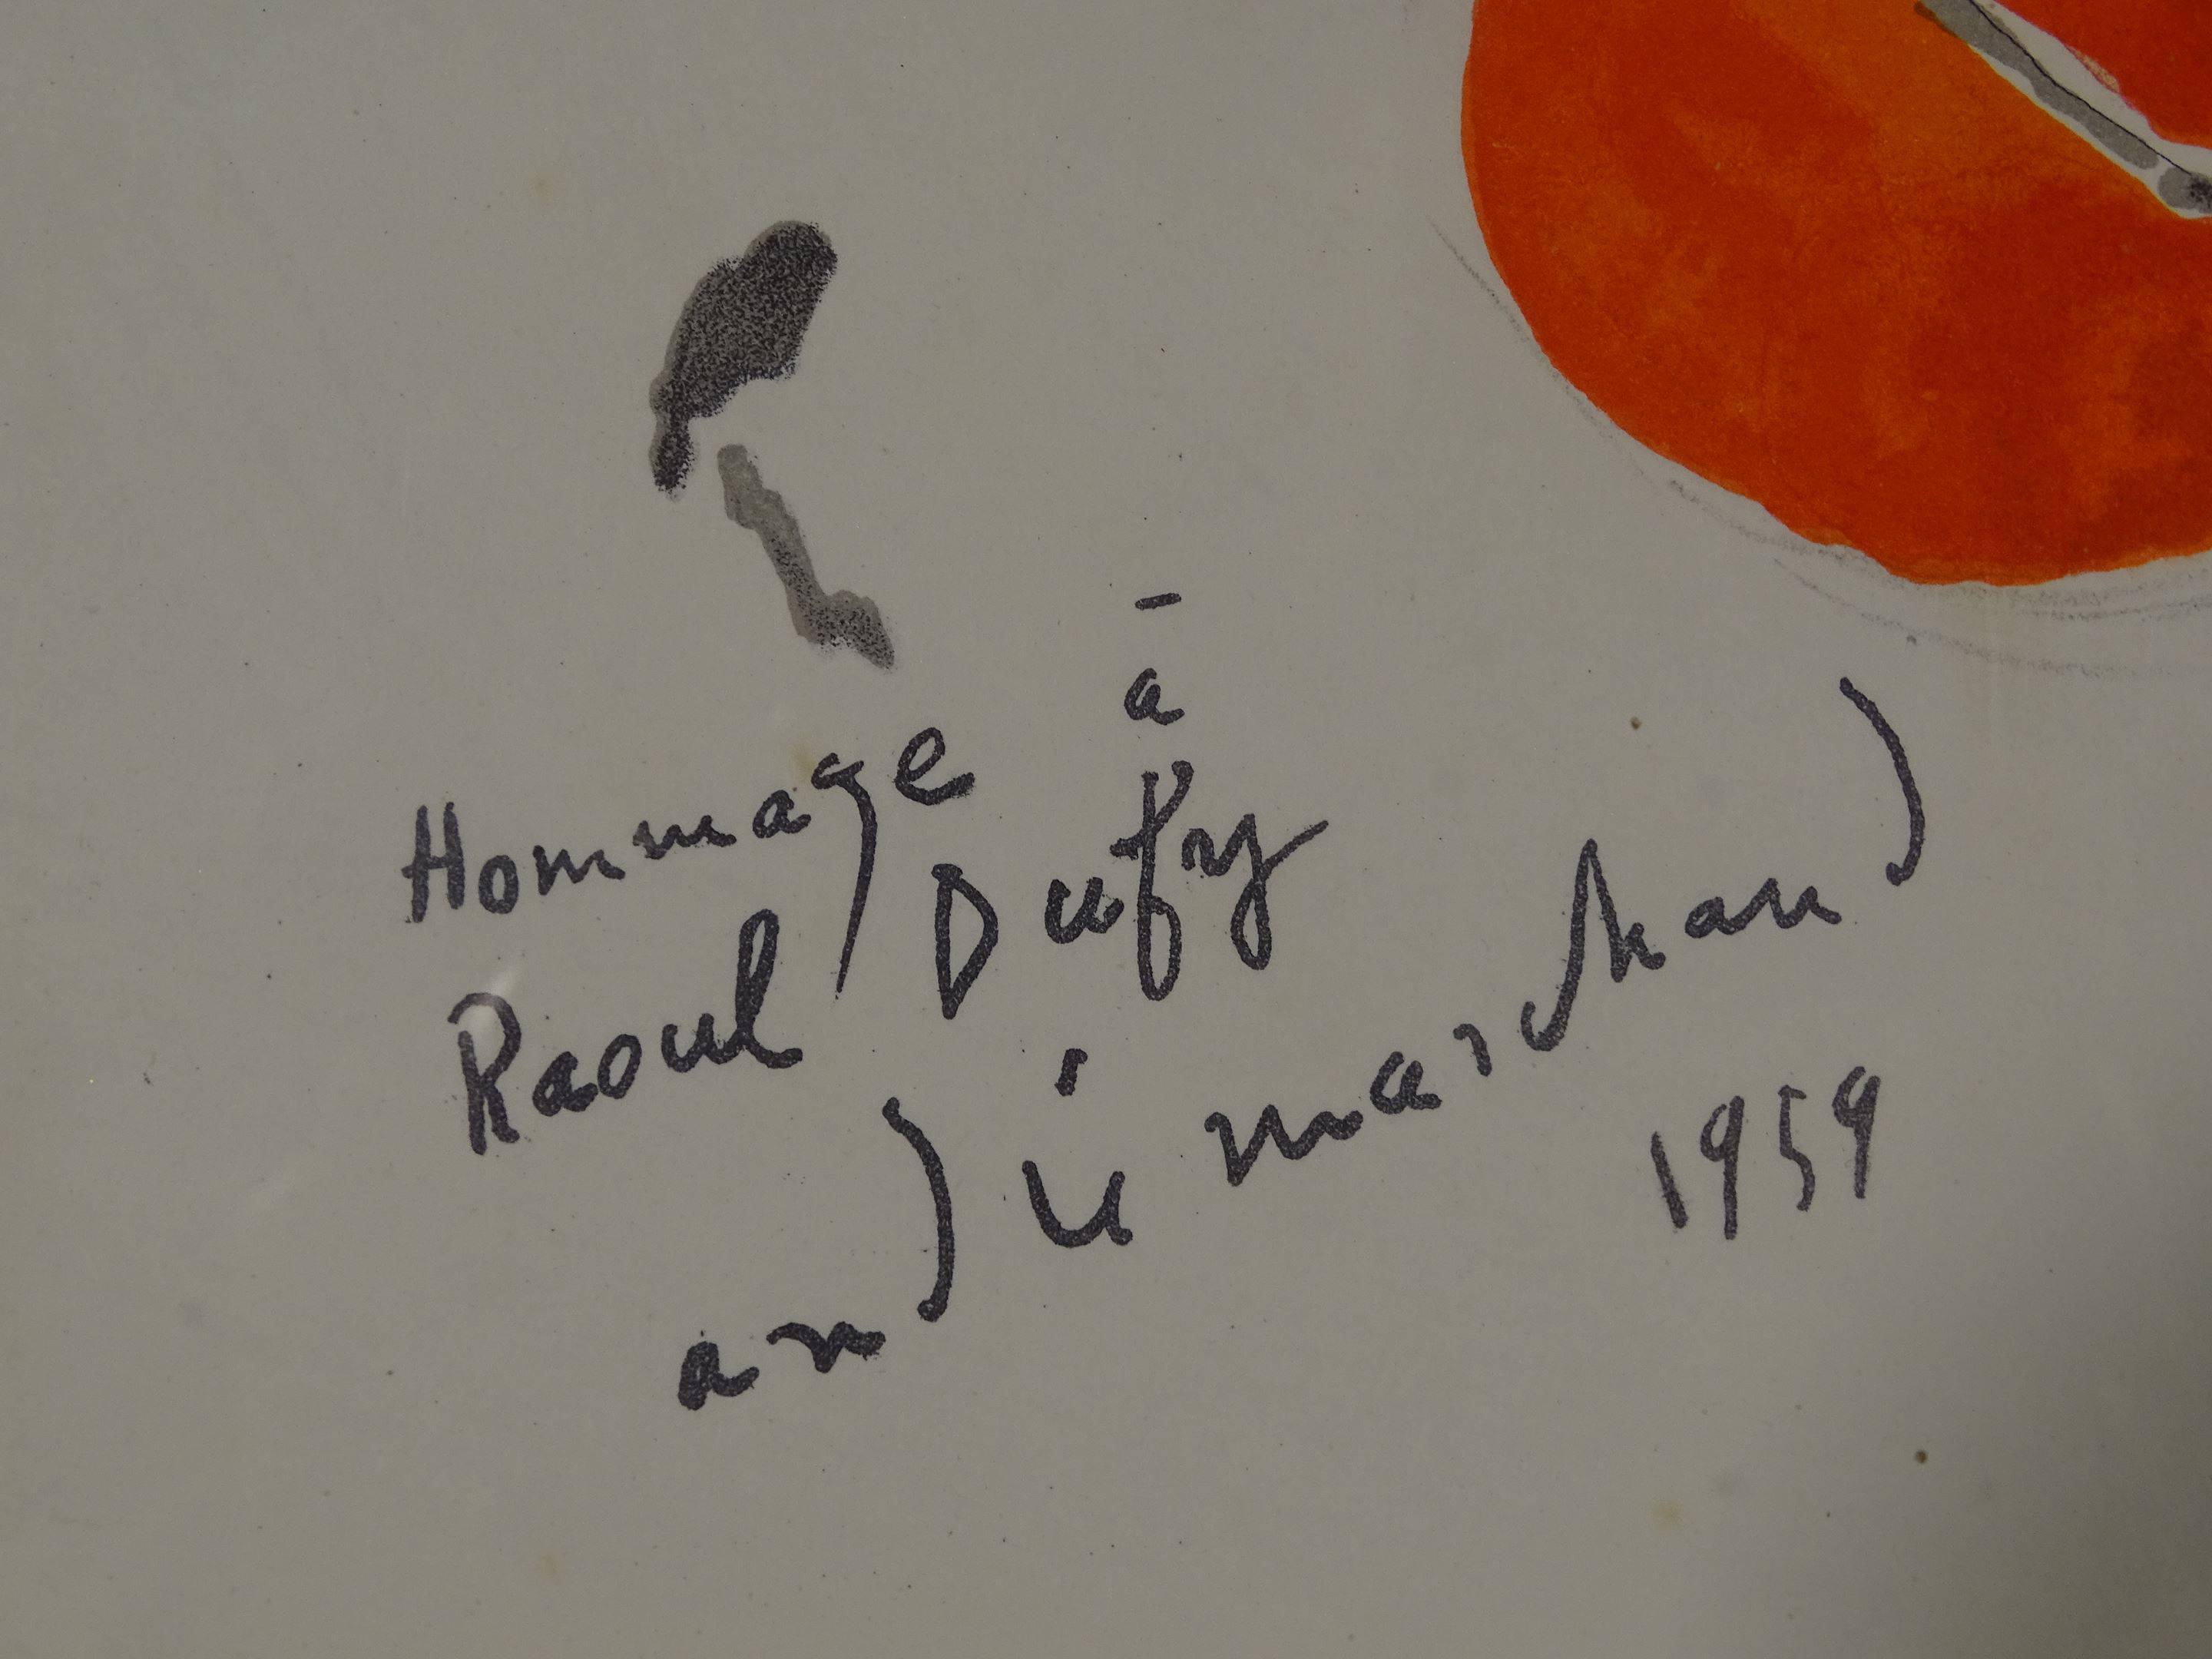 Hommage à
Raoul Dufy
andré marchand
1959